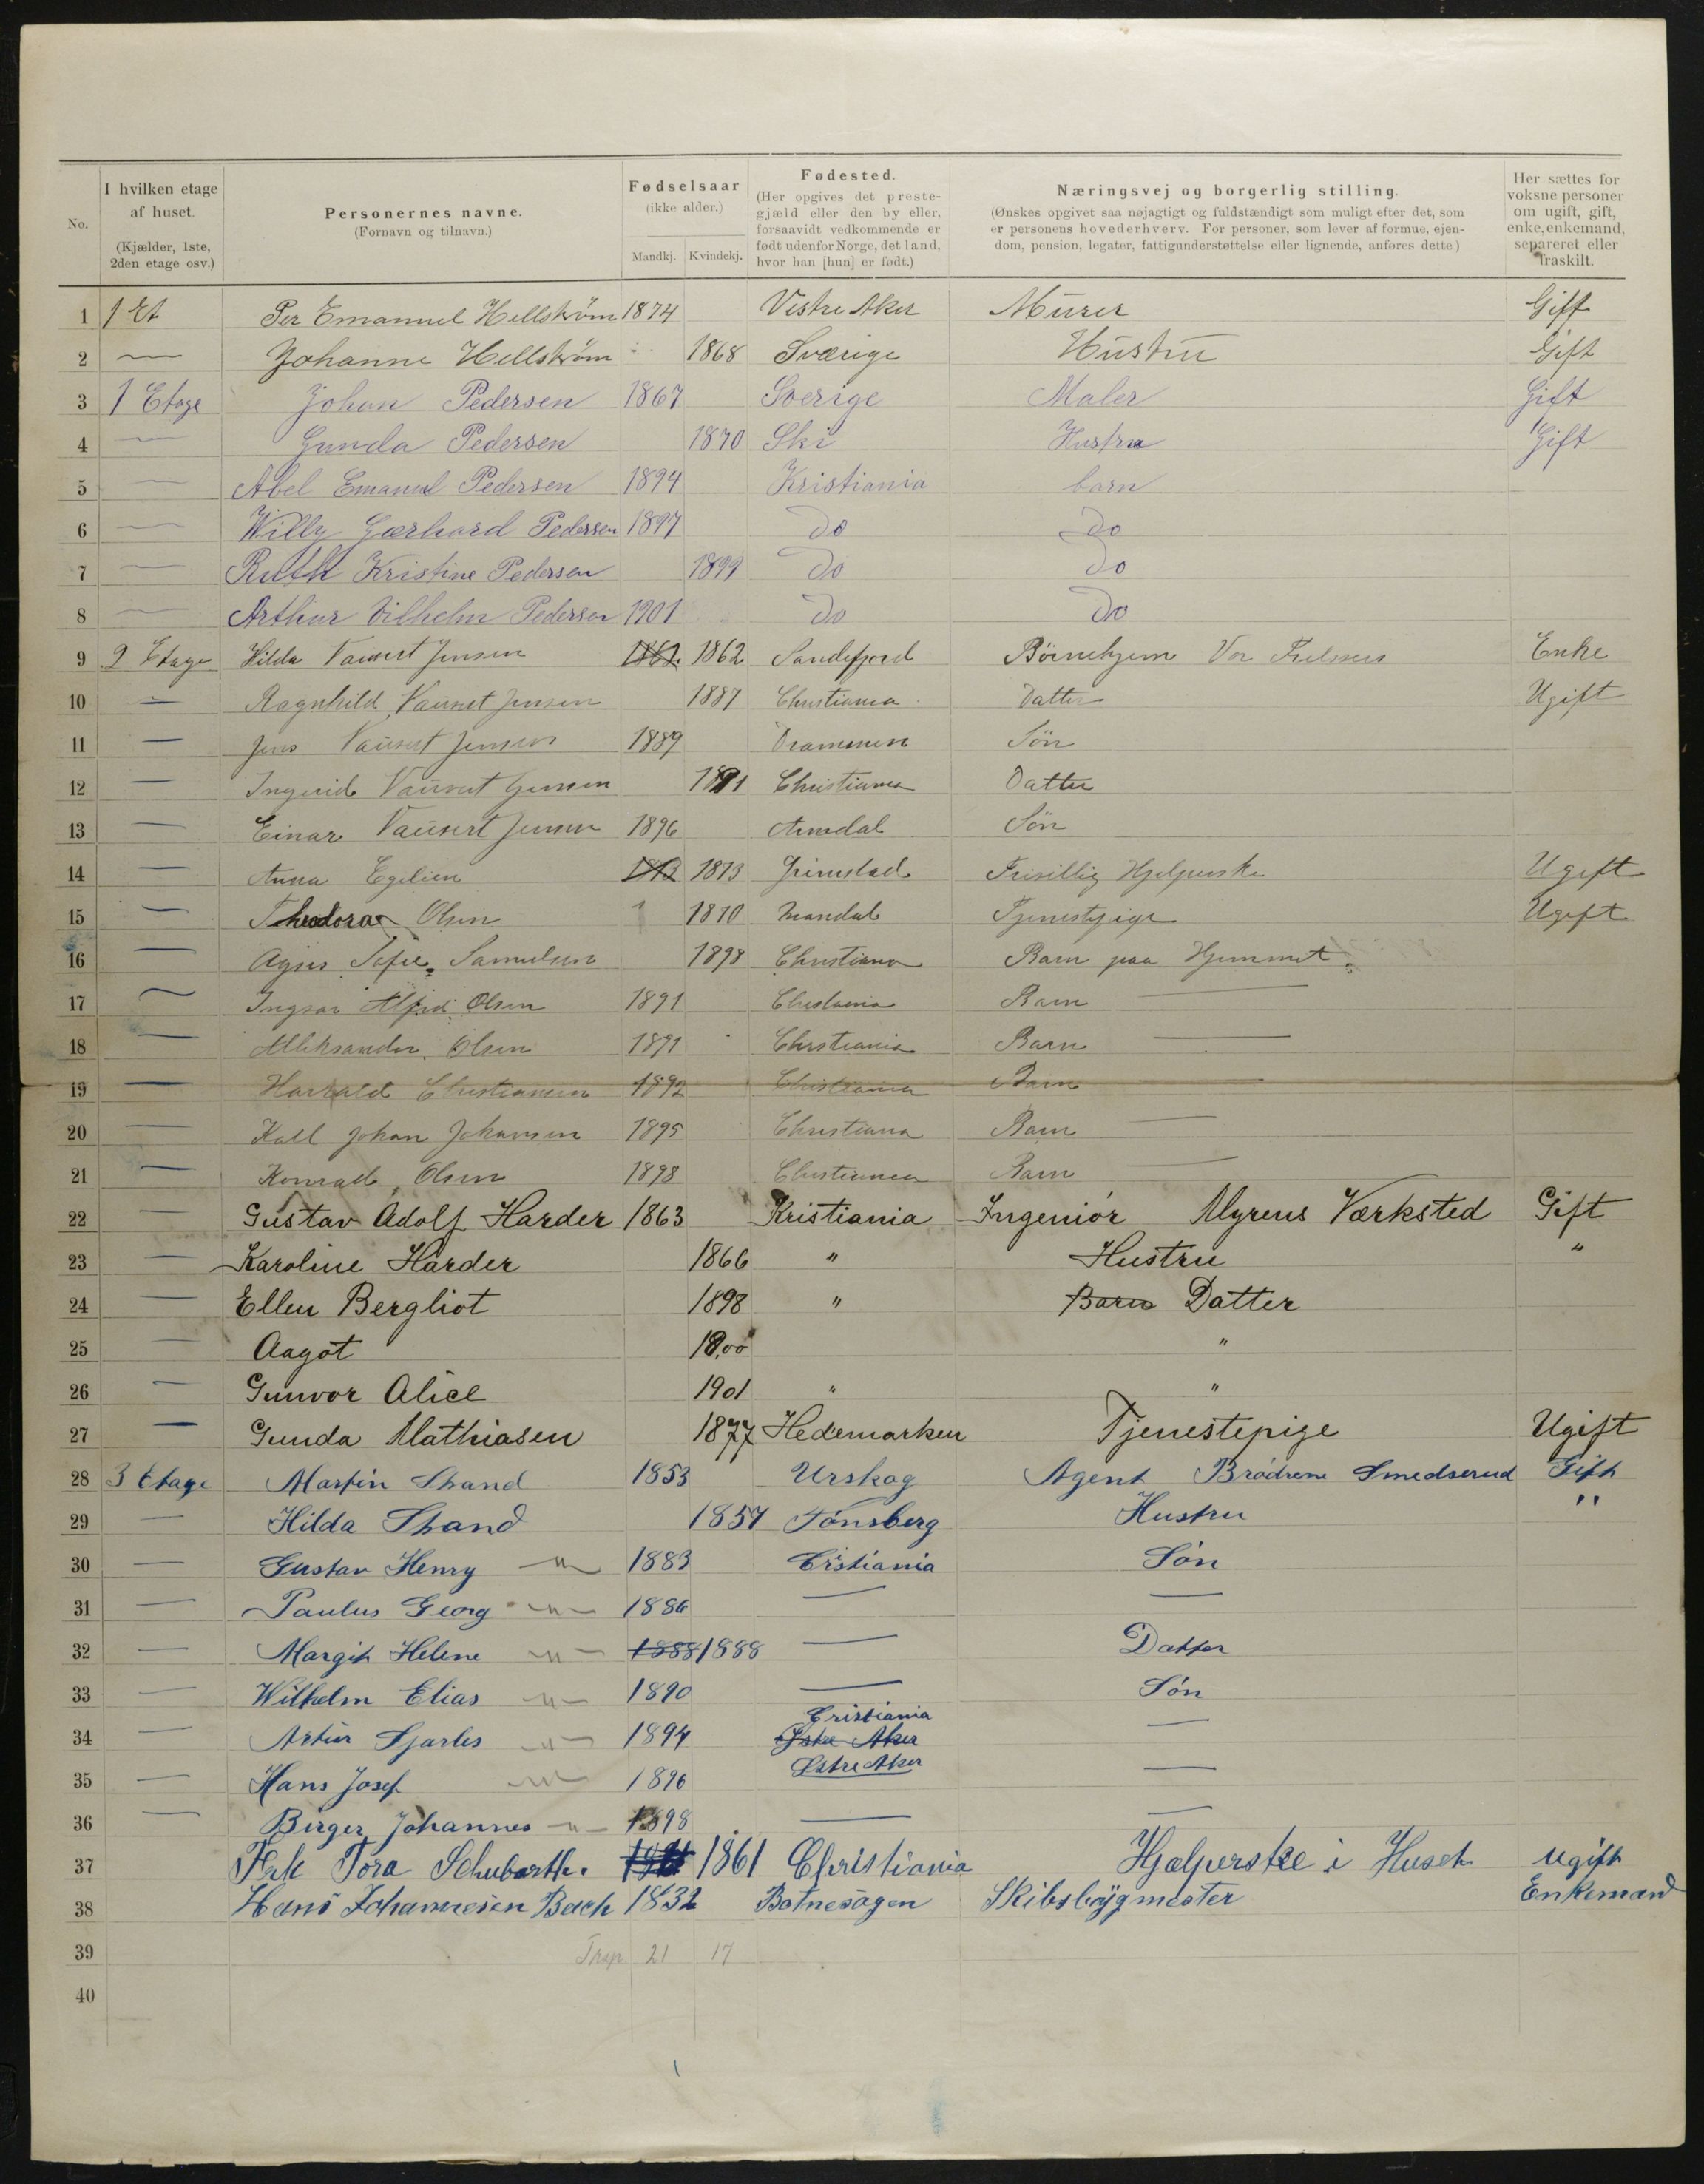 No.
I hvilken etage af huset. (Kjælder, 1ste, 2den etage osv.)
Personernes navne. (Fornavn og tilnavn.)
Fødselsaar (ikke alder.) Mandkj. Kvindekj.
Fødested. (Her opgives det prestegjæld eller den by eller, forsaavidt vedkommende er født udenfor Norge, det land, hvor han [hun] er født.)
Næringsvej og borgerlig stilling. (Ønskes opgivet saa nøjagtigt og fuldstændigt som muligt efter det, som er personens hovederhverv. For personer, som lever af formue, ejendom, pension, legater, fattigunderstøttelse eller lignende, anføres dette)
Her sættes for voksne personer om ugift, gift, enke, enkemand, separeret eller fraskilt.
1 1 Et Per Emanuel Hellstrøm 1874 Vestre Aker Murer Gift
2 — Johanne Hellstrøm 1868 Sværige Hustru Gift
3 1 Etage Johan Pedersen 1867 Sverige Maler Gift
4 — Gunda Pedersen 1870 Ski Hustru Gift
5 — Abel Emanuel Pedersen 1894 Kristiania barn
6 — Willy Gærhard Pedersen 1897 do do
7 — Ruth Kristine Pedersen 1899 do do
8 — Arthur Vilhelm Pedersen 1901 do do
9 2 Etage Hilda Jensen 1862 Sandefjord Børnehjem Vor Frelsers Enke
10 — Ragnhild Jensen 1887 Christiania Datter Ugift
11 — Jens Jensen 1889 Drammen Søn
12 — Ingerid Jensen 1891 Christiania Datter
13 — Einar Jensen 1896 Arendal Søn
14 — Anna Egelien 1873 Grimstad Frivillig Hjelperske Ugift
15 — Theodora Olsen 1870 Mandal Tjenestepige Ugift
16 — Agnes Sofie Samuelsen 1898 Christiania Barn paa Hjemmet
17 — Ingvar Alfred Olsen 1891 Christiania Barn —
18 — Alleksander Olsen 1891 Christiania Barn —
19 — Harrald Christiansen 1892 Christiania Barn —
20 — Kall Johan Johansen 1895 Christiana Barn —
21 — Konrad Olsen 1898 Christiania Barn —
22 — Gustav Adolf Harder 1863 Kristiania Ingeniør Myrens Værksted Gift
23 — Karoline Harder 1866 " Hustru "
24 — Ellen Bergliot 1898 " Barn Datter
25 — Aagot 1900 "
26 — Gunvor Alice 1901 " "
27 — Gunda Mathiasen 1877 Hedemarken Tjenestepige Ugift
28 3 Etage Martin Strand 1853 Urskog Agent Brødrene Smedserud Gift
29 — Hilda Strand 1857 Tønsberg Hustru "
30 — Gustav Henry —"— 1883 Cristiania Søn
31 — Paulus Georg —"— 1886 — —
32 — Margit Helene —"— 1888 1888 — Datter
33 — Wilhelm Elias —"— 1890 — Søn
34 — Artur Sjarles —"— 1894 Cristiania Østre Aker —
35 — Hans Josef —"— 1896 Østre Aker —
36 — Birger Johannes —"— 1898 — —
37 Frk Tora Schubarth. 1861 Christiania Hjælperske i Huset ugift
38 Hans Johannesen Bach 1832 Botnesogen Skibsbygmester Enkemand
39 21 17
40